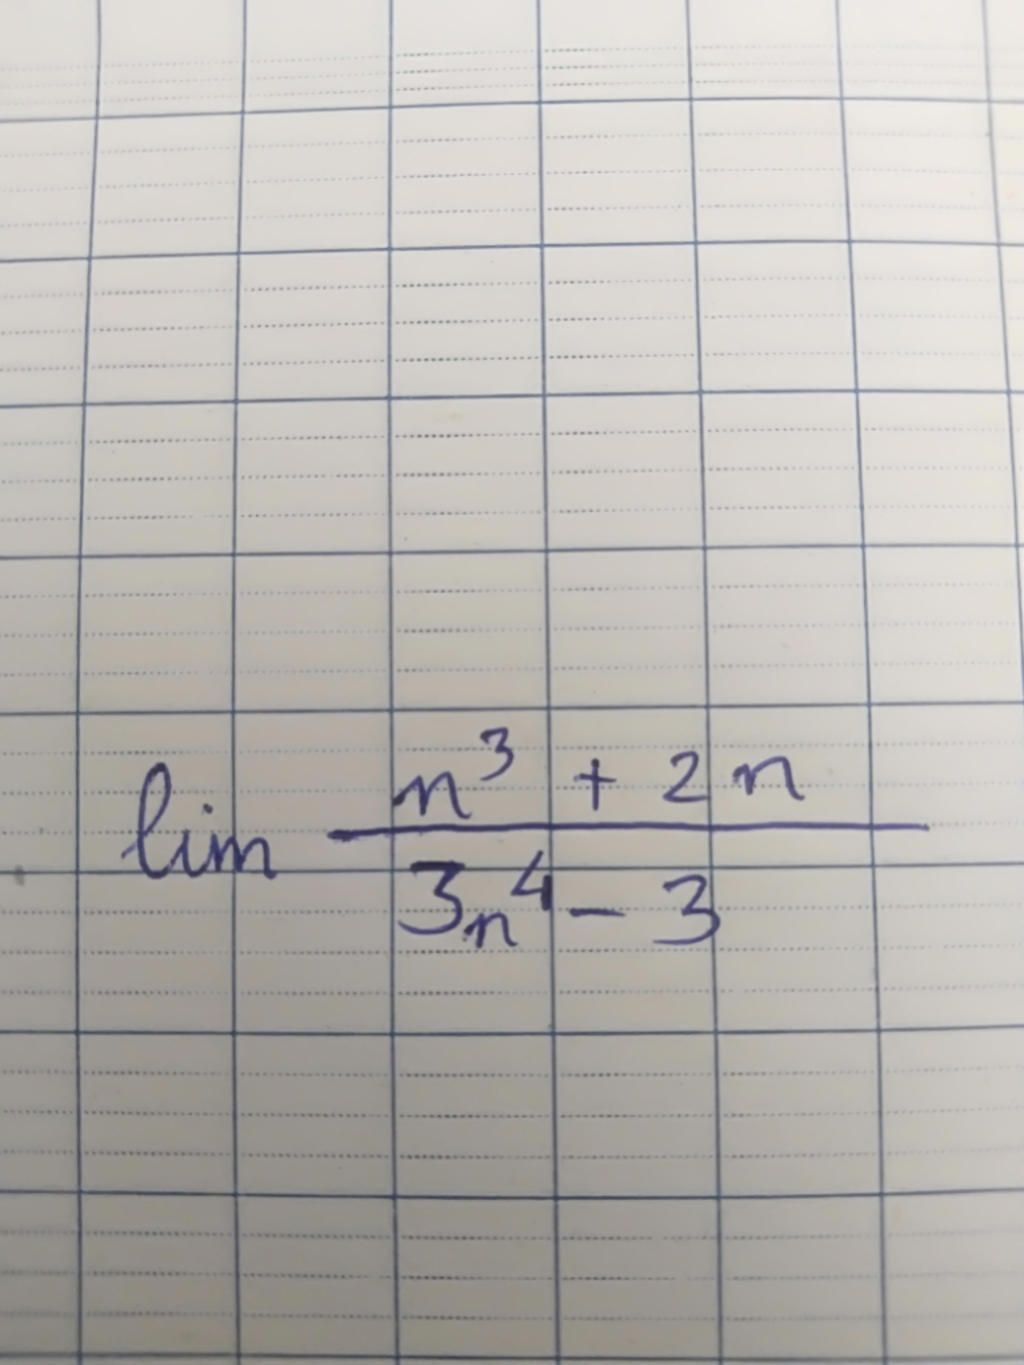 lim n³ + 2n / 3n⁴ - 3